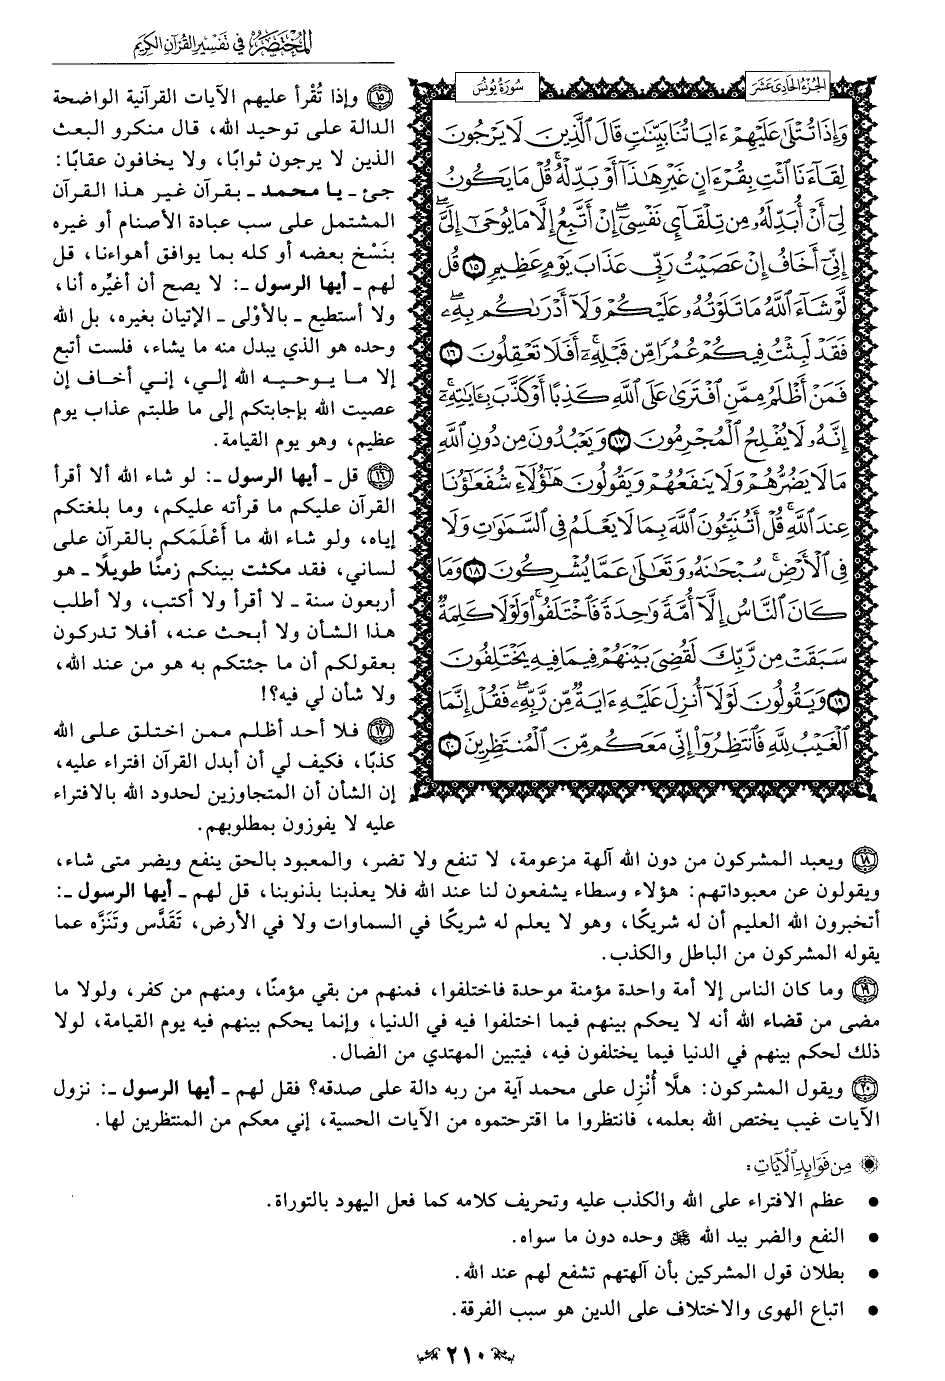 المختصر في تفسير القرآن الكريم
الجزء الحادي عشر
سورة يونس
وَإِذَا تُتْلَىٰ عَلَيْهِمْ ءَايَاتُنَا بَيِّنَٰتٖ قَالَ ٱلَّذِينَ لَا يَرْجُونَ
لِقَآءَنَا ٱئْتِ بِقُرْءَانٍ غَيْرِ هَٰذَآ أَوْ بَدِّلْهُۚ قُلْ مَا يَكُونُ
لِيٓ أَنْ أُبَدِّلَهُۥ مِن تِلْقَآيِٕ نَفْسِيٓۖ إِنْ أَتَّبِعُ إِلَّا مَا يُوحَىٰٓ إِلَيَّۖ
إِنِّيٓ أَخَافُ إِنْ عَصَيْتُ رَبِّي عَذَابَ يَوْمٍ عَظِيمٖ ١٥ قُل
لَّوْ شَآءَ ٱللَّهُ مَا تَلَوْتُهُۥ عَلَيْكُمْ وَلَآ أَدْرَىٰكُم بِهِۦۖ
فَقَدْ لَبِثْتُ فِيكُمْ عُمُرٗا مِّن قَبْلِهِۦٓۚ أَفَلَا تَعْقِلُونَ ١٦
فَمَنْ أَظْلَمُ مِمَّنِ ٱفْتَرَىٰ عَلَى ٱللَّهِ كَذِبًا أَوْ كَذَّبَ بِـَٔايَٰتِهِۦٓۚ
إِنَّهُۥ لَا يُفْلِحُ ٱلْمُجْرِمُونَ ١٧ وَيَعْبُدُونَ مِن دُونِ ٱللَّهِ
مَا لَا يَضُرُّهُمْ وَلَا يَنفَعُهُمْ وَيَقُولُونَ هَٰٓؤُلَآءِ شُفَعَٰٓؤُنَا
عِندَ ٱللَّهِۚ قُلْ أَتُنَبِّـُٔونَ ٱللَّهَ بِمَا لَا يَعْلَمُ فِي ٱلسَّمَٰوَٰتِ وَلَا
فِي ٱلْأَرْضِۚ سُبْحَٰنَهُۥ وَتَعَٰلَىٰ عَمَّا يُشْرِكُونَ ١٨ وَمَا
كَانَ ٱلنَّاسُ إِلَّآ أُمَّةٗ وَٰحِدَةٗ فَٱخْتَلَفُواْۚ وَلَوْلَا كَلِمَةٞ
سَبَقَتْ مِن رَّبِّكَ لَقُضِيَ بَيْنَهُمْ فِيمَا فِيهِ يَخْتَلِفُونَ
١٩ وَيَقُولُونَ لَوْلَآ أُنزِلَ عَلَيْهِ ءَايَةٞ مِّن رَّبِّهِۦۖ فَقُلْ إِنَّمَا
ٱلْغَيْبُ لِلَّهِ فَٱنتَظِرُوٓاْ إِنِّي مَعَكُم مِّنَ ٱلْمُنتَظِرِينَ ٢٠
١٥ وإذا تُقْرأ عليهم الآيات القرآنية الواضحة
الدالة على توحيد الله، قال منكرو البعث
الذين لا يرجون ثوابًا، ولا يخافون عقابًا:
جئ ـ يا محمد ـ بقرآن غير هذا القرآن
المشتمل على سب عبادة الأصنام أو غيره
بنَسْخ بعضه أو كله بما يوافق أهواءنا، قل
لهم ـ أيها الرسول ـ: لا يصح أن أغيِّره أنا،
ولا أستطيع ـ بالأوْلى ـ الإتيان بغيره، بل الله
وحده هو الذي يبدل منه ما يشاء، فلست أتبع
إلا ما يوحيه الله إلي، إني أخاف إن
عصيت الله بإجابتكم إلى ما طلبتم عذاب يوم
عظيم، وهو يوم القيامة.
١٦ قل ـ أيها الرسول ـ: لو شاء الله ألا أقرأ
القرآن عليكم ما قرأته عليكم، وما بلغتكم
إياه، ولو شاء الله ما أَعْلَمَكم بالقرآن على
لساني، فقد مكثت بينكم زمنًا طويلًا ـ هو
أربعون سنة ـ لا أقرأ ولا أكتب، ولا أطلب
هذا الشأن ولا أبحث عنه، أفلا تدركون
بعقولكم أن ما جئتكم به هو من عند الله،
ولا شأن لي فيه؟!
١٧ فلا أحد أظلم ممن اختلق على الله
كذبًا، فكيف لي أن أبدل القرآن افتراء عليه،
إن الشأن أن المتجاوزين لحدود الله بالافتراء
عليه لا يفوزون بمطلوبهم.
١٨ ويعبد المشركون من دون الله آلهة مزعومة، لا تنفع ولا تضر، والمعبود بالحق ينفع ويضر متى شاء،
ويقولون عن معبوداتهم: هؤلاء وسطاء يشفعون لنا عند الله فلا يعذبنا بذنوبنا، قل لهم ـ أيها الرسول ـ:
أتخبرون الله العليم أن له شريكًا، وهو لا يعلم له شريكًا في السماوات ولا في الأرض، تَقَدَّس وتَنَزَّه عما
يقوله المشركون من الباطل والكذب.
١٩ وما كان الناس إلا أمة واحدة مؤمنة موحدة فاختلفوا، فمنهم من بقي مؤمنًا، ومنهم من كفر، ولولا ما
مضى من قضاء الله أنه لا يحكم بينهم فيما اختلفوا فيه في الدنيا، وإنما يحكم بينهم فيه يوم القيامة، لولا
ذلك لحكم بينهم في الدنيا فيما يختلفون فيه، فيتبين المهتدي من الضال.
٢٠ ويقول المشركون: هلَّا أُنْزِل على محمد آية من ربه دالة على صدقه؟ فقل لهم ـ أيها الرسول ـ: نزول
الآيات غيب يختص الله بعلمه، فانتظروا ما اقترحتموه من الآيات الحسية، إني معكم من المنتظرين لها.
من فوائد الآيات:
• عظم الافتراء على الله والكذب عليه وتحريف كلامه كما فعل اليهود بالتوراة.
• النفع والضر بيد الله ﷻ وحده دون ما سواه.
• بطلان قول المشركين بأن آلهتهم تشفع لهم عند الله.
• اتباع الهوى والاختلاف على الدين هو سبب الفرقة.
٢١٠